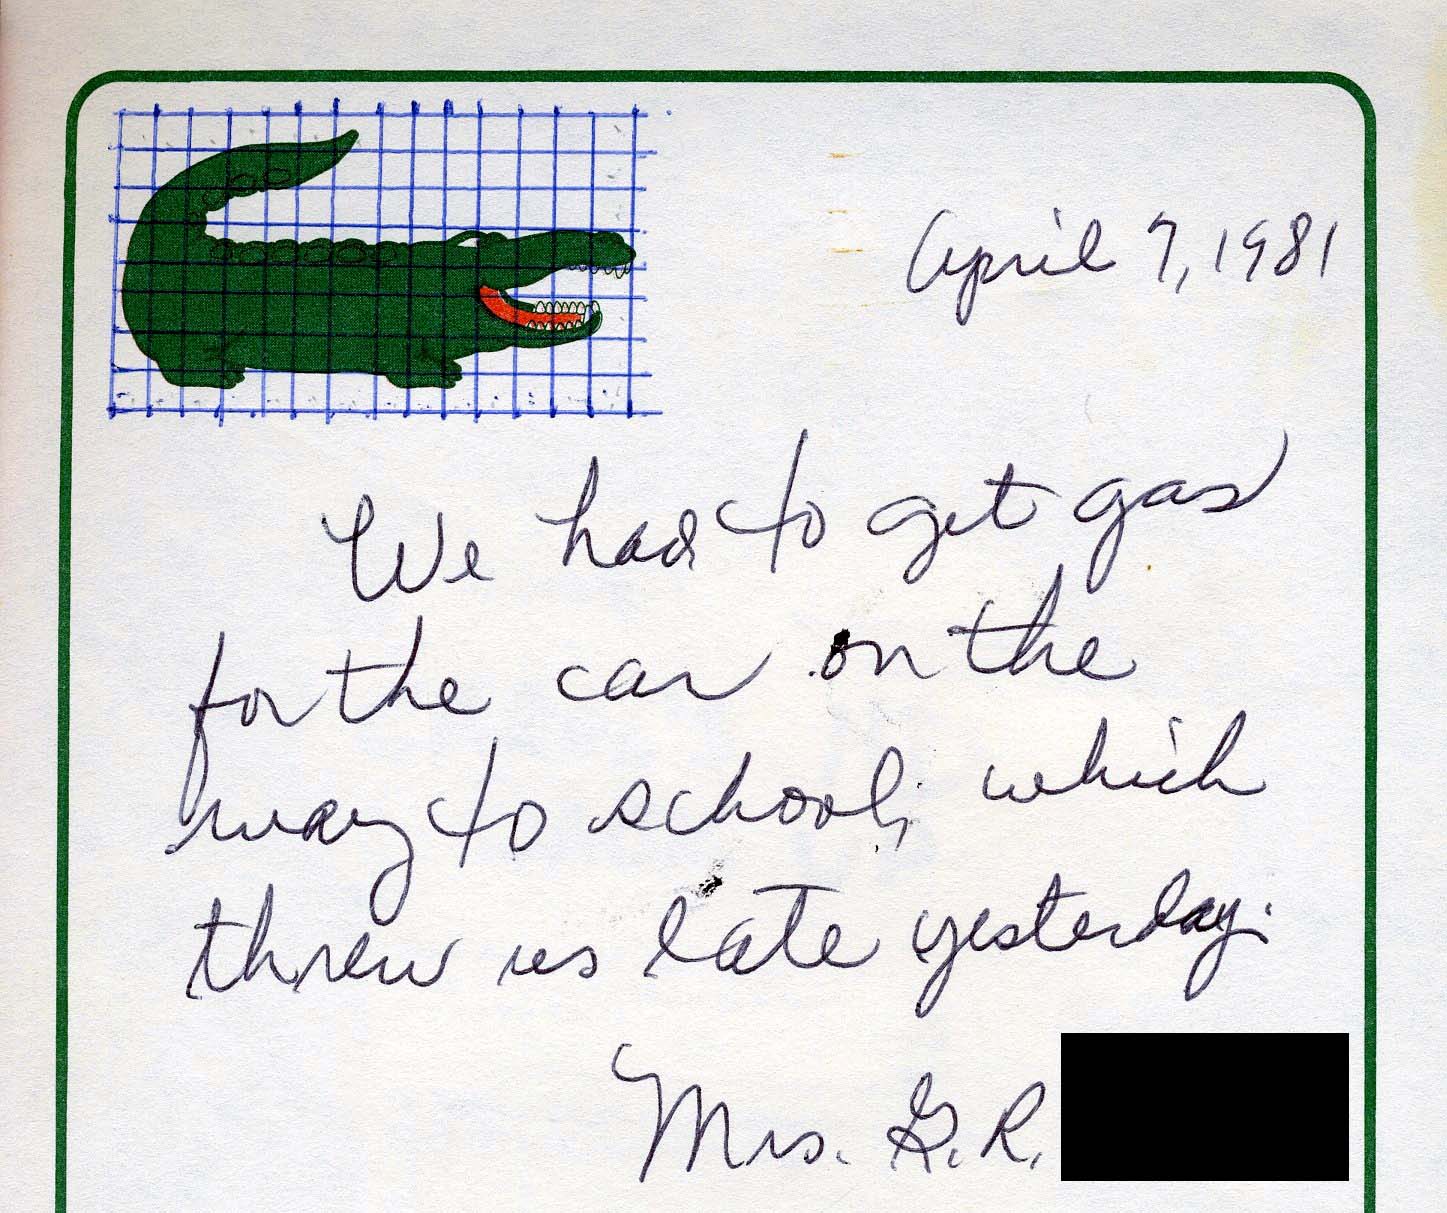 April 7, 1981
We had to get gas
for the car on the
way to school, which
threw us late yesterday.
Mrs. G. R.